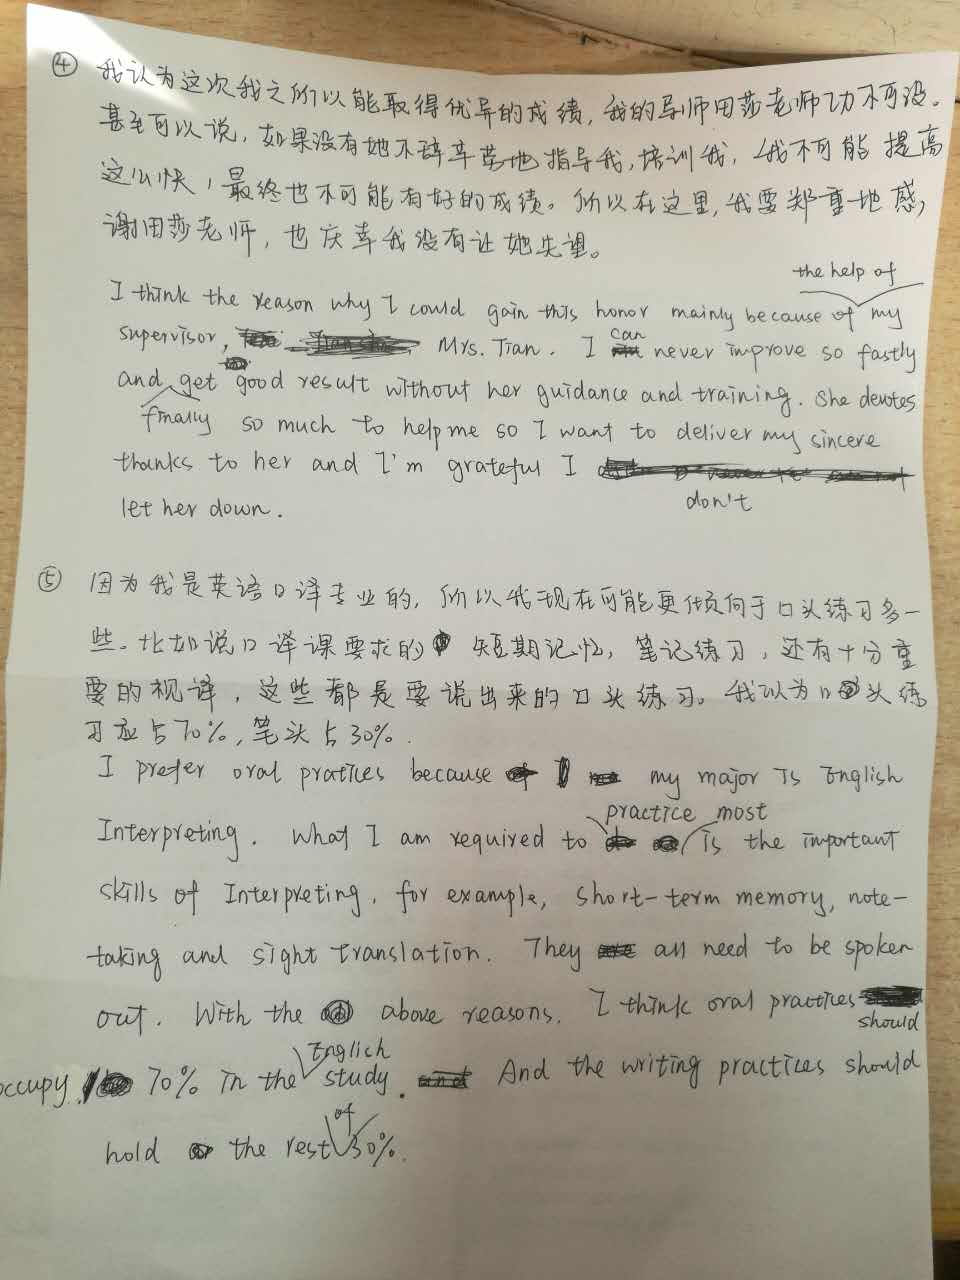 ④ 我认为这次我之所以能取得优异的成绩,我的导师田莎老师功不可没。
甚至可以说,如果没有她不辞辛苦地指导我,培训我,我不可能提高
这么快,最终也不可能有好的成绩。所以在这里,我要郑重地感
谢田莎老师,也庆幸我没有让她失望。
the help of
I think the reason why I could gain this honor mainly because of my
supervisor, Mrs. Tian. I can never improve so fastly
and get good result without her guidance and training. She devotes
finally so much to help me so I want to deliver my sincere
thanks to her and I'm grateful I
don't
let her down.
⑤ 因为我是英语口译专业的,所以我现在可能更倾向于口头练习多一
些。比如说口译课要求的短期记忆,笔记练习,还有十分重
要的视译,这些都是要说出来的口头练习。我认为口头练
习应占70%,笔头占30%.
I prefer oral pratices because my major is English
practice most
Interpreting. What I am required to is the important
skills of Interpreting, for example, short-term memory, note-
taking and sight translation. They all need to be spoken
out. With the above reasons, I think oral practices
should
English
occupy 70% in the study. And the writing practices should
of
hold the rest 30%.